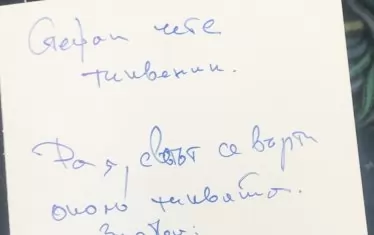 Стефан чете
тиквении.
Да, светът се върти
около тиквата.